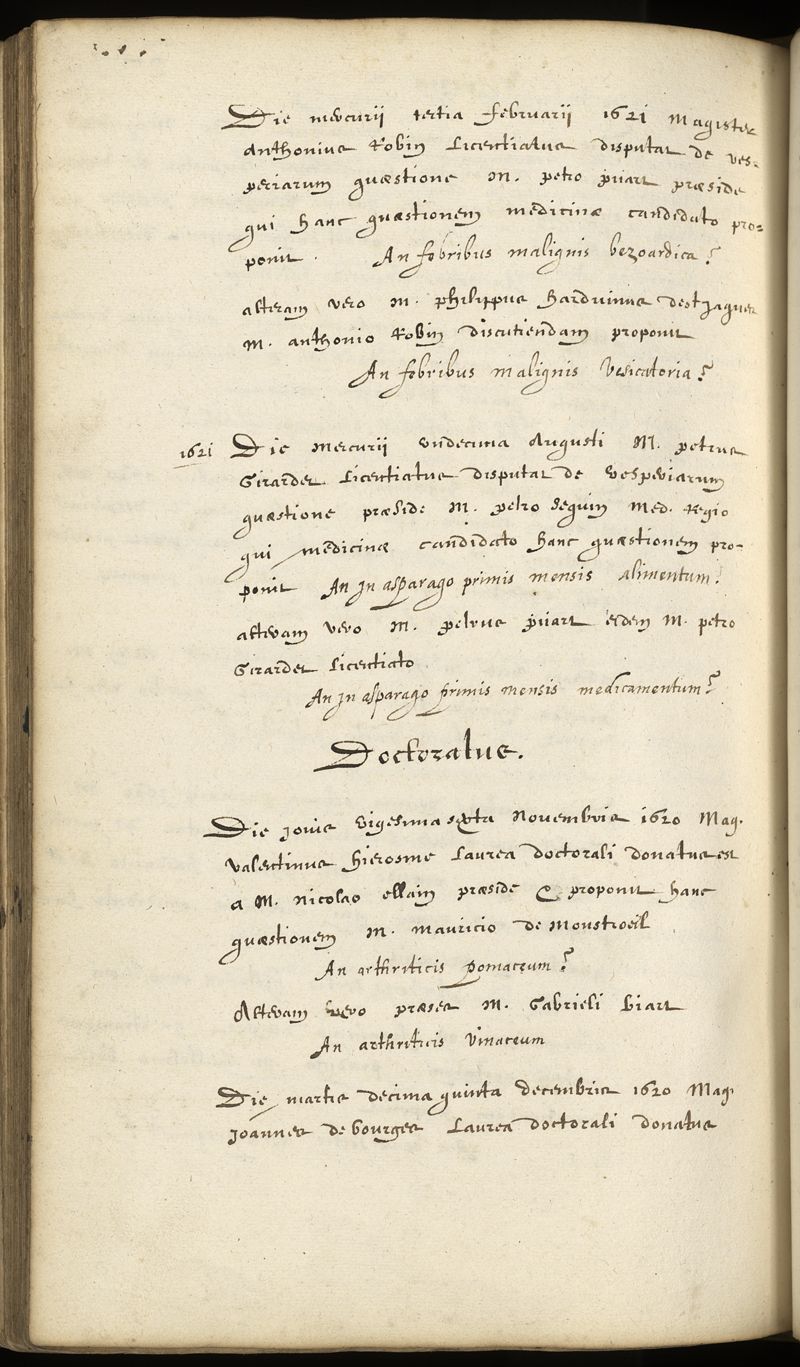 Die mercurii tertia februarii 1621 Magister
Anthonius Robin Licentiatus disputat de ves-
periarum quæstione M. petro pijart præside
qui hanc quæstionem medicinæ candidato pro-
ponit. An febribus malignis bezoardica?
alteram vero M. philippus harduinus de st Jaques
M. anthonio Robin discutiendam proponit
An febribus malignis vesicatoria?
1621 Die Mercurii undecima Augusti M. petrus
Girardet Licentiatus disputat de vesperiarum
quæstione præside M. petro Seguin Med. Regio
qui medicinæ candidato hanc quæstionem pro-
ponit An in asparago primis mensis alimentum?
alteram vero M. petrus pijart eidem M. petro
Girardet Licentiato
An in asparago primis mensis medicamentum?
Doctoratus.
Die jovis vigesima sexta Novembris 1620 Mag.
valentinus hierosme Laurea doctorali donatus est
a M. nicolao ellain præside & proponit hanc
quæstionem M. mauricio de Monstroeil
An arthriticis pomaceum?
Alteram vero præses M. Gabrieli biart
An arthriticis vinaceum
Die martis decima quinta decembris 1620 Mag.
Joannes de bourges Laurea doctorali donatus